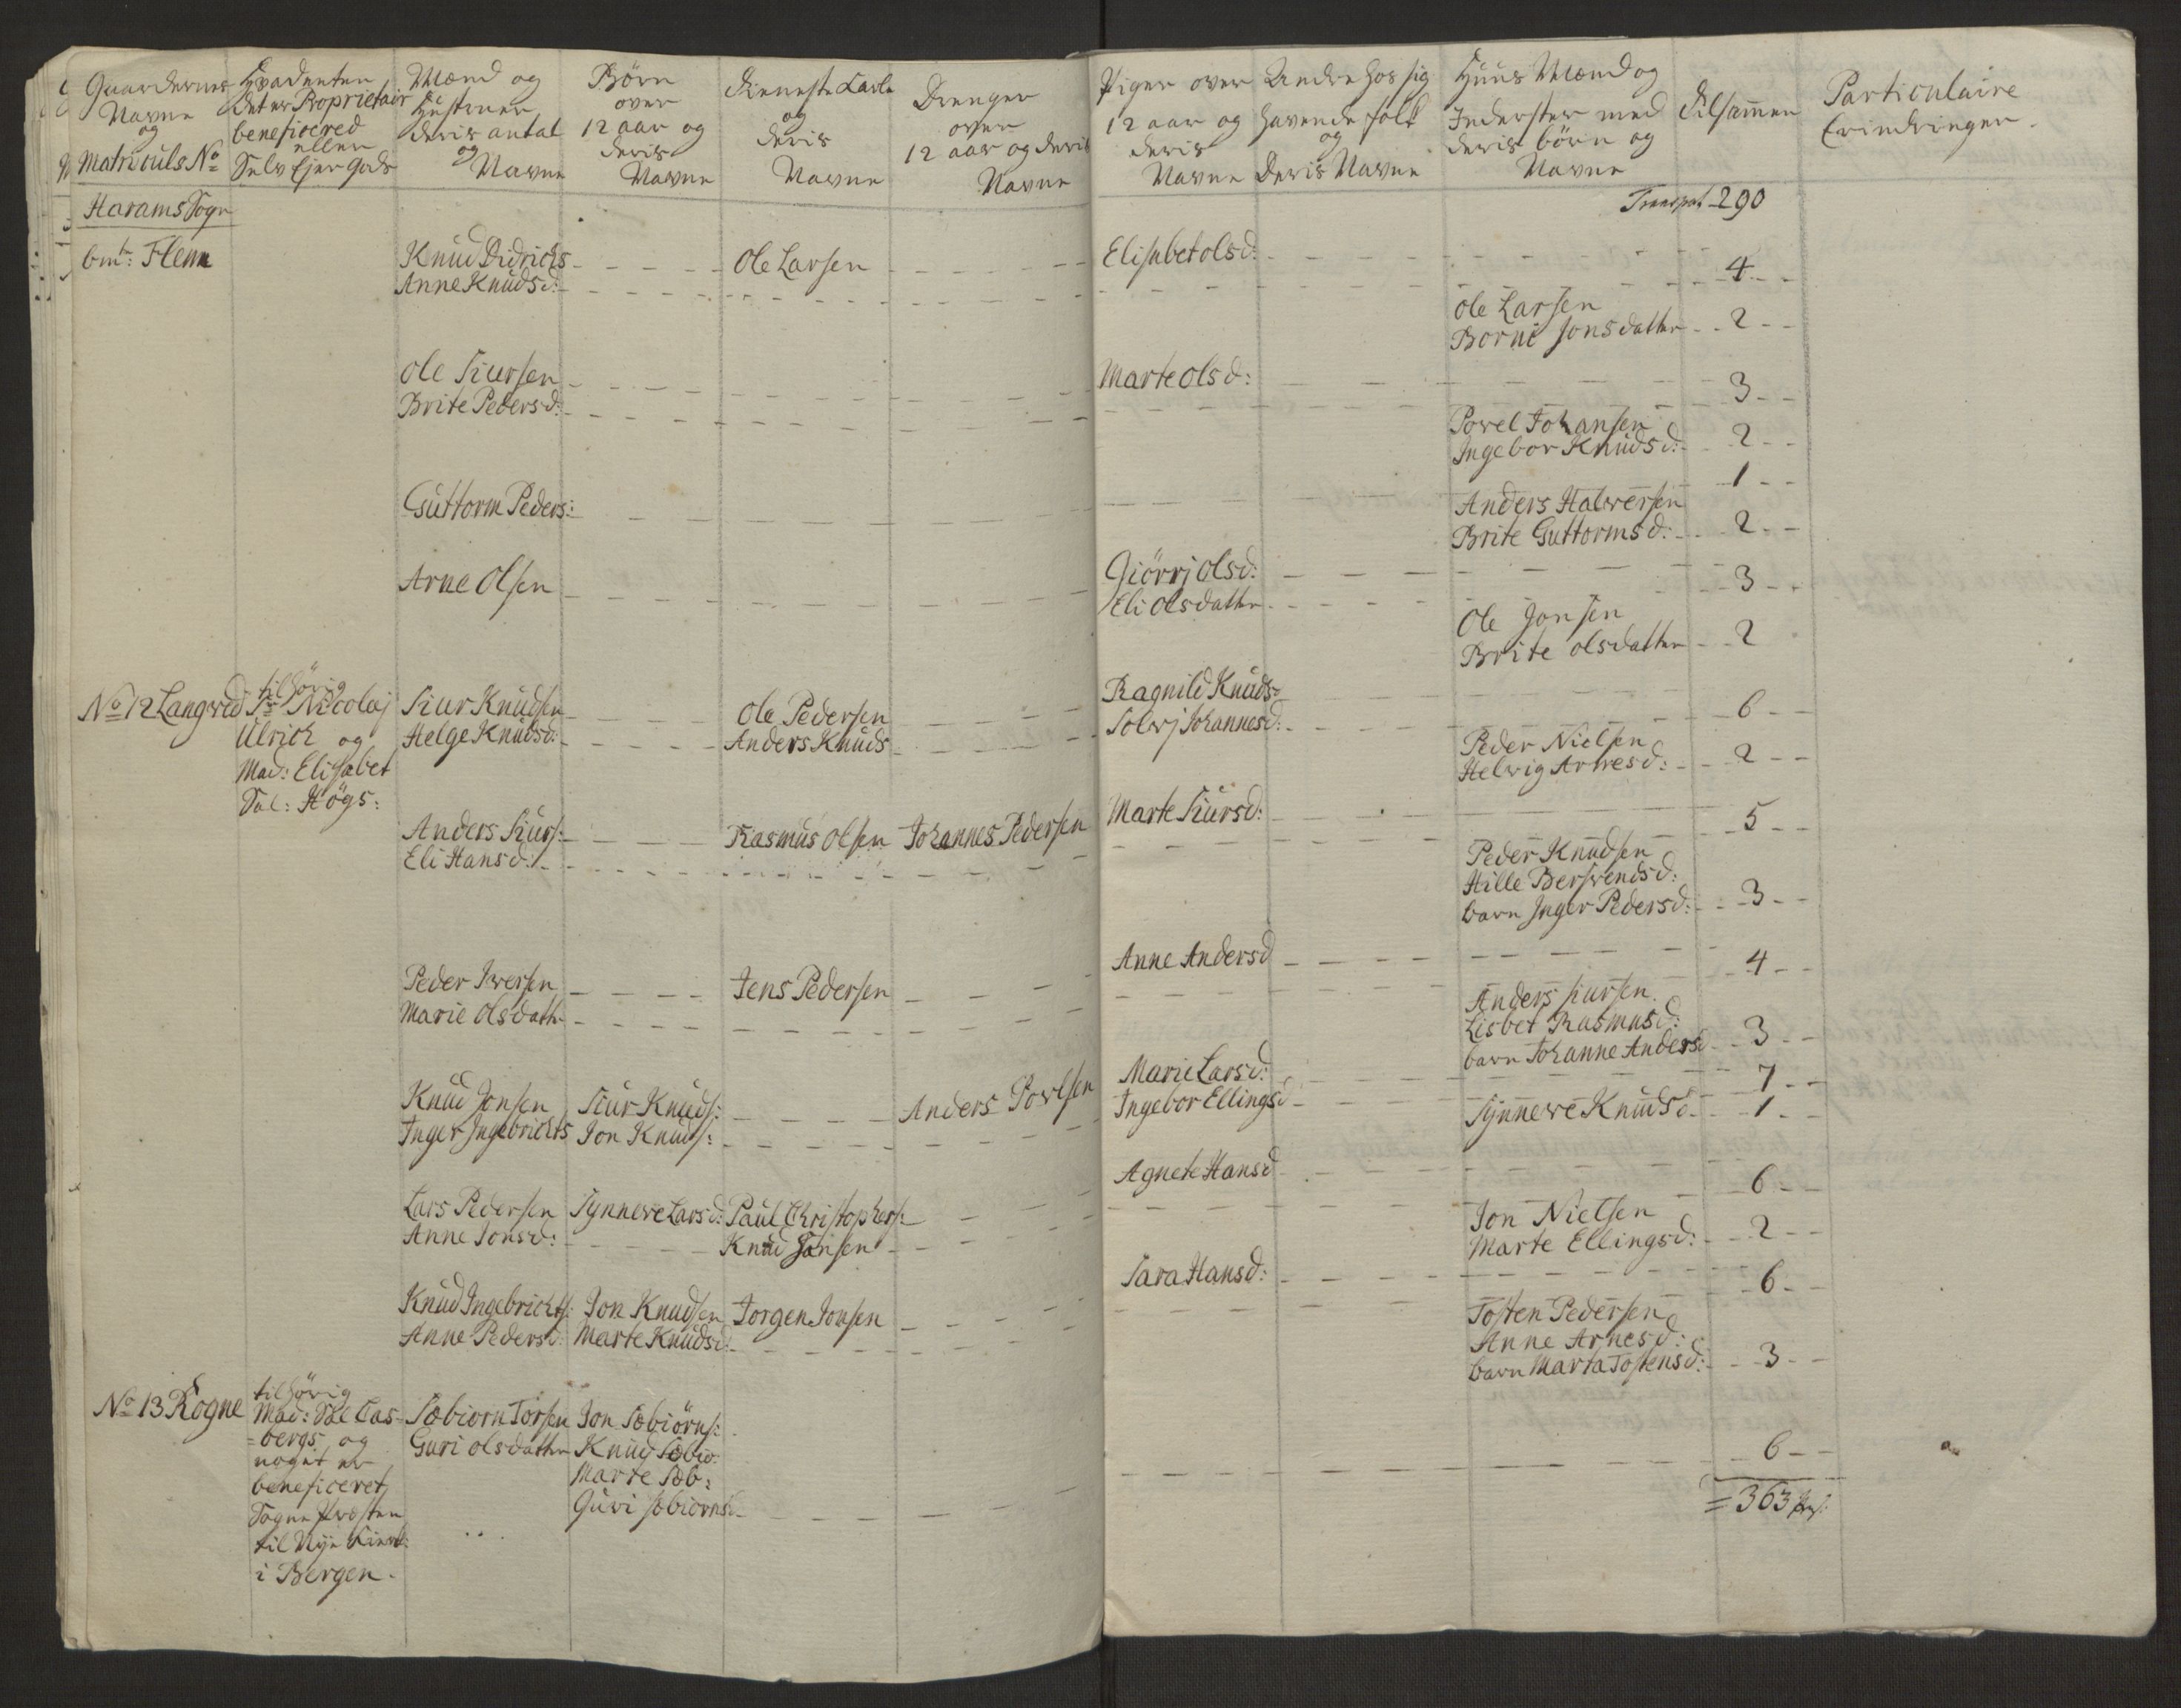 Gaardernes
Navne
og
Matriculs No
Hvadenten
Det er Proprietair
beneficered
eller
Selv Ejer Gods
Mænd og
Hustruer
deris antal
og
Navne
Børn
over
12 aar og
deris
Navne
Tieneste Karle
og
deris
Navne
Drenger
over
12 aar og deris
Navne
Piger over
12 aar og
deris
Navne
Andre hos sig
havende folk
og
Deris Navne
Huus Mænd og
Inderster med
deris börn og
Navne
Tilsamen
Particulaire
Erindringer.
Harams Sogn
Transpot 290
Flem
Knud Didrichs
Ole Larsen
Elisabet olsd:
Anne Knudsd:
4
Ole Larsen
Borni Jonsdatter 2
Ole Siursen
Marte olsd:
3
Brite Pedersd:
Powel Johansen
Ingebor Knudsd: 2
Guttorm Peders:
1
Anders Halversen
Brite Guttormsd: 2
Arne Olsen
Giörrj Olsd:
3
Eli Olsdatter
Ole Jonsen
Brite olsdatter 2
No 12 Langved
tilhörig
Sr Nicolaj
Ulrich og
Mad: Elisabet
Sal: Högs:
Siur Knudsen
Ole Pedersen
Ragnild Knuds
6
Helge Knudsd:
Anders Knuds
Solvj Johannesd:
Peder Nielsen
Helvig Arnesd: 2
Anders Siurs:
Rasmus Olsen
Johannes Pedersen
Marte Siursd:
5
Eli Hansd:
Peder Knudsen
Hille Bersvendsd:
barn Inger Pedersd: 3
Peder Iversen
Jens Pedersen
Anne Andersd
4
Marie Olsdatr
Anders Siursen
Lisbet Rasmusd:
barn Johanne Andersd 3
Knud Jonsen
Siur Knuds:
Anders Powlsen
Marie Larsd:
7
Inger Ingebrichts
Jon Knuds:
Ingebor Ellingsd
Synneve Knudsd 1
Lars Pedersen
Synneve Larsd:
Paul Christophers:
Agnete Hansd
6
Anne Jonsd:
Knud Jonsen
Jon Nielsen
Marte Ellingsd: 2
Knud Ingebrichts:
Jon Knudsen
Jorgen Jonsen
Sara Hansd:
6
Anne Pedersd:
Marte Knudsd:
Tosten Pedersen
Anne Arnesd:
barn Marta Tostensd: 3
No 13 Rogne
tilhörig
Mad: Sal Cas-
=bergs og
noget er
beneficeret
Sogne Presten
til Nye Kirke:
i Bergen.
Sæbiorn Torsen
Jon Sæbiörns:
Guri olsdatter
Knud Sæbio:
Marte Sæb:
Guri sæbiornsd
6
= 363